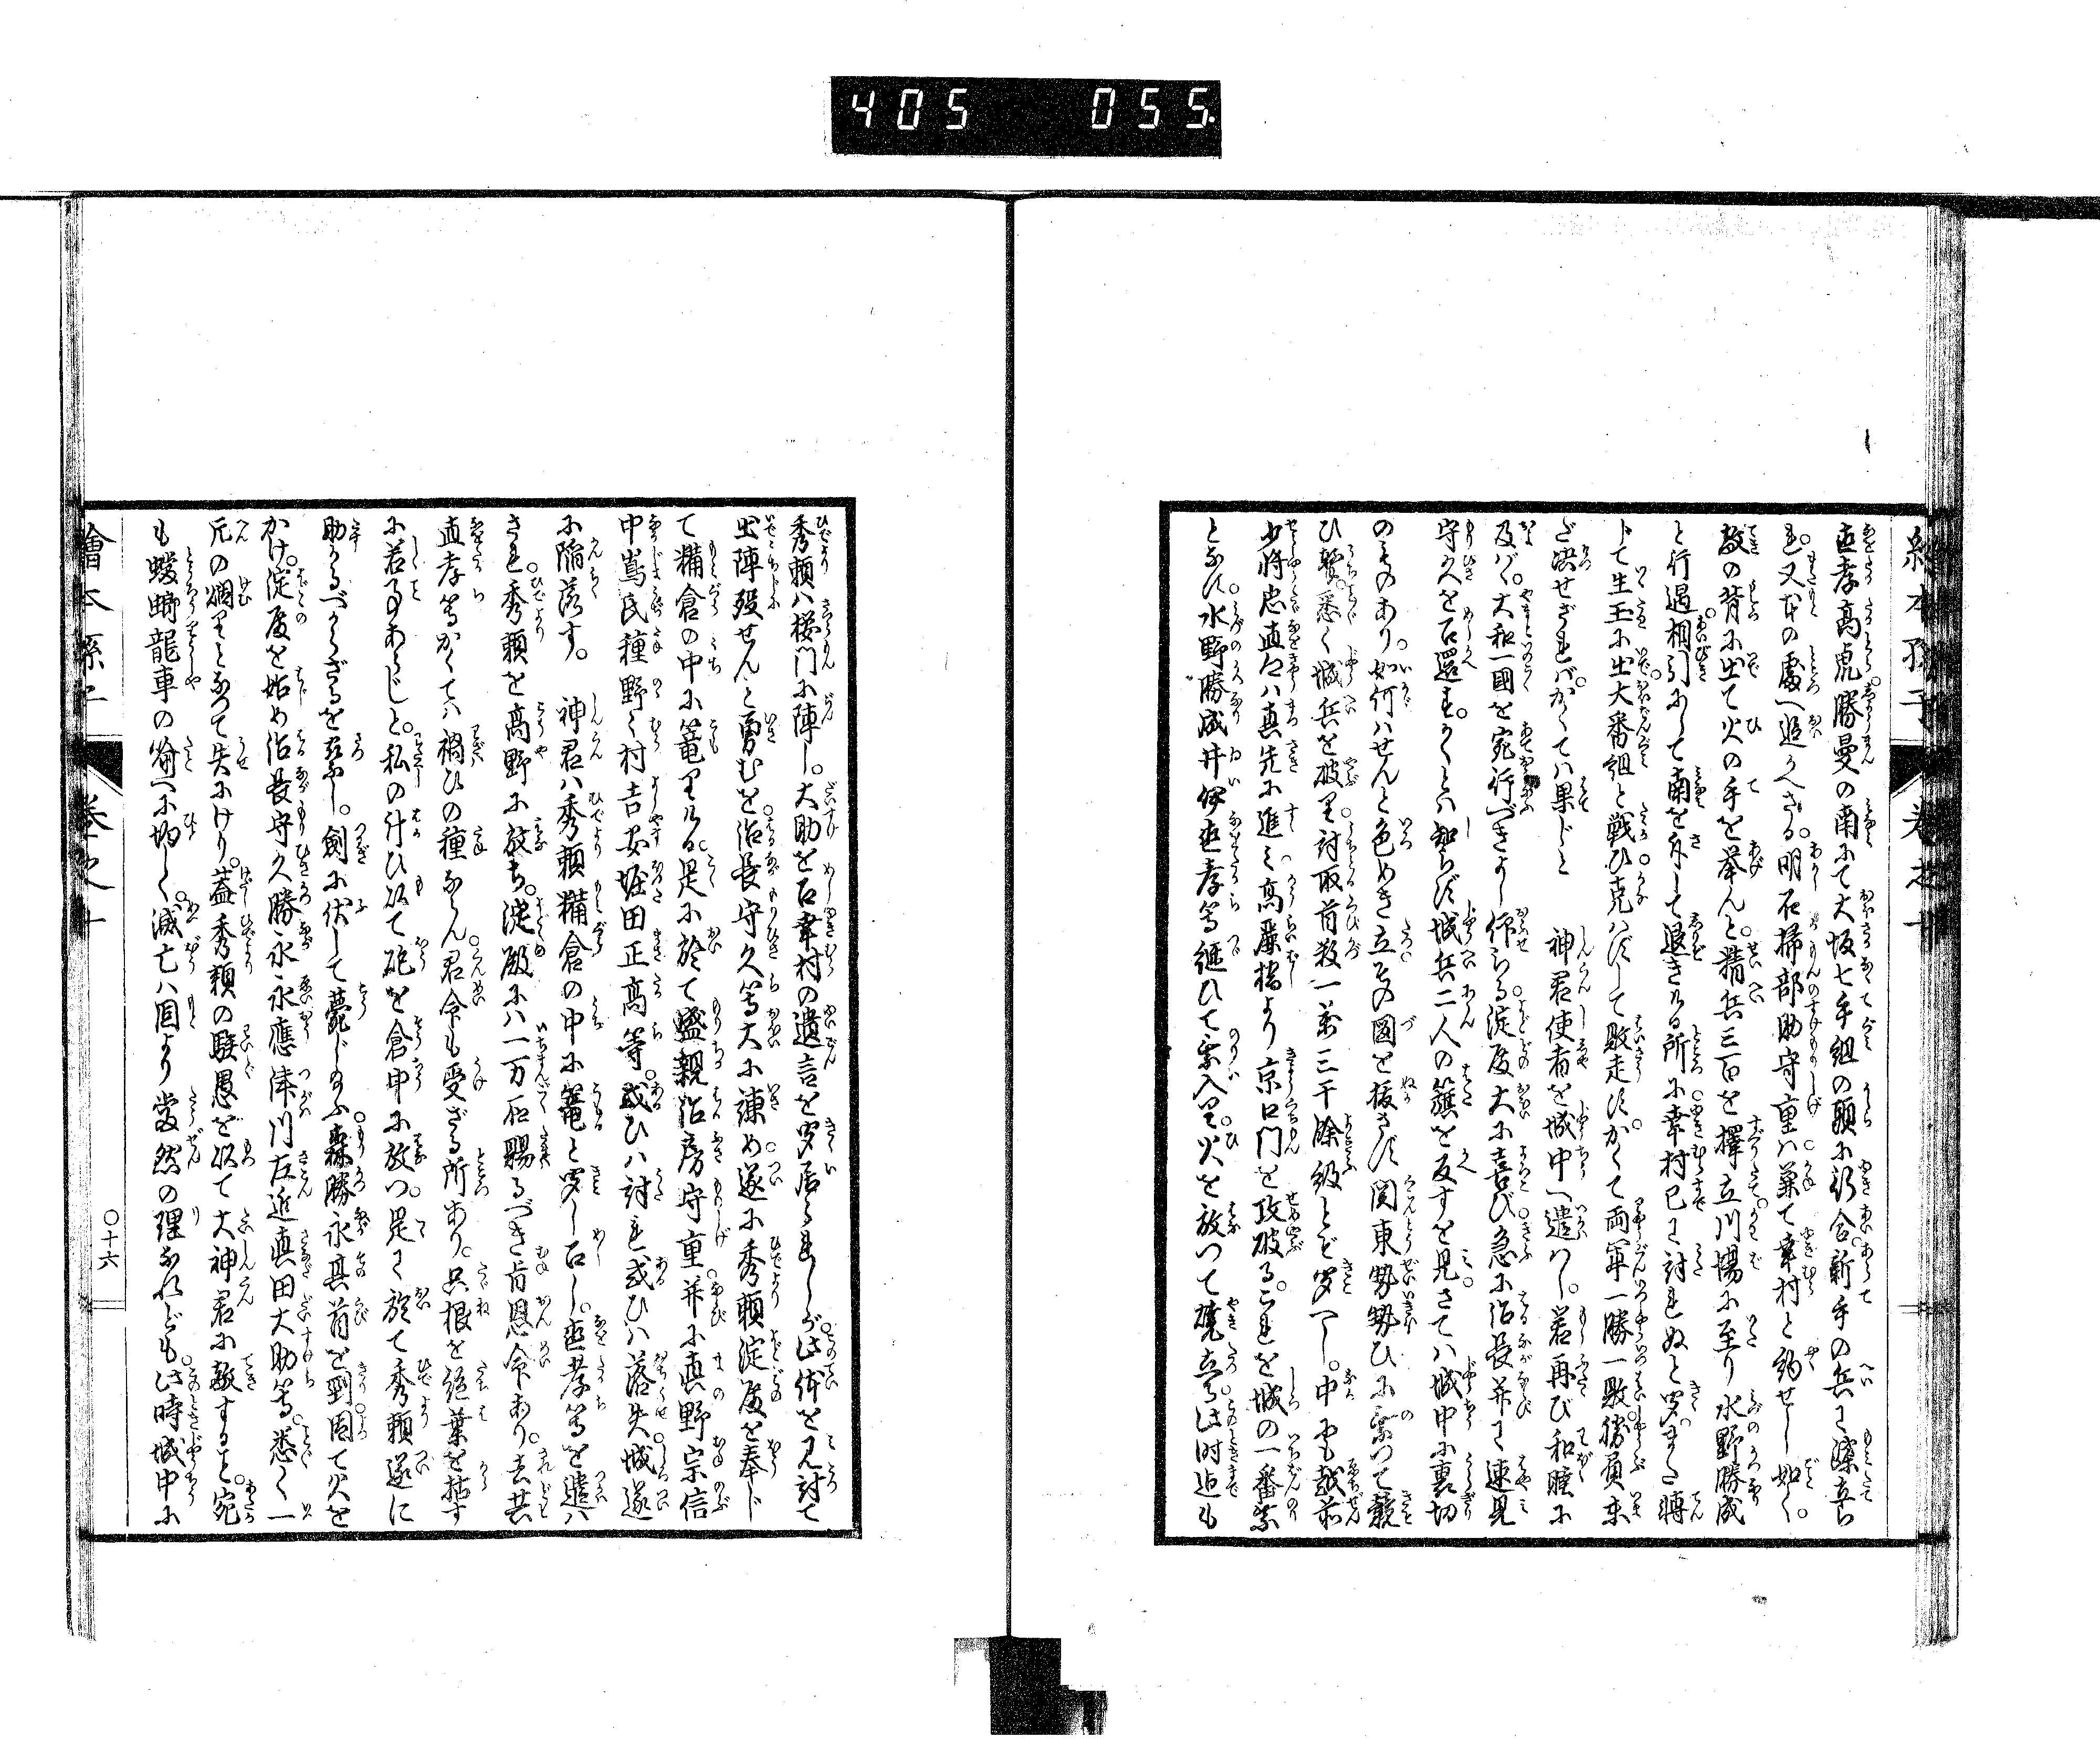 405 055
繪本孫子 卷之十
直孝高虎。勝曼の南にて大坂七手組の頭に行合。新手の兵に渫立ら
れ。又本の處へ追かへさる。明石掃部助守重ハ兼て幸村と約せし如く。
敵の背に出て火の手を挙んと。精兵三百を擇立川場に至り水野勝成
と行遇。相引にして南を斥して退きける所に。幸村已に討れぬと聞。また轉
下て生玉に出。大番組と戦ひ。克ハずして敗走す。かくて両軍一勝一敗。勝負未
だ決せざれバ。かくてハ果じと　神君使者を城中へ遣ハし。若再び和睦に
及バ。大和一國を宛行べきよし仰らる。淀殿大に喜び。急に治長并に速見
守久を召還す。かくとハ知らず城兵二人の籏を反すを見。さてハ城中に裏切
のものあり。如何ハせんと色めき立その圖を抜さず。関東勢勢ひに乗つて競
ひ撃。悉く城兵を破り。討取首数一萬三千餘級とぞ聞へし。中にも越前
少将忠直々ハ真先に進ミ高麗橋より京口門を攻破る。これを城の一番乗
となす。水野勝成井伊直孝等継ひて乗入り。火を放つて焼立る。此时迄も
秀頼ハ桜門に陣し。大助を召幸村の遺言を聞居られしが。此体を見討て
出陣歿せんと勇むを。治長守久等大に諫め。遂に秀頼淀殿を奉じ
て糒倉の中に篭りける。是に於て盛親治房守重。并に真野宗信
中嶌氏種野々村吉安堀田正高等。或ひハ討れ或ひハ落失。城遂
に陥落す。　神君ハ秀頼糒倉の中に篭と聞し召し。直孝等を遣ハ
され。秀頼を高野に放ち。淀殿にハ一万石賜るべき旨恩命あり。去共
直孝等かくてハ禍ひの種ならん。君命も受ざる所あり。只根を絶葉を枯す
に若事あらじと。私の計ひ以て砲を倉中に放つ。是に於て秀頼遂に
助かるべからざるを差ふし。劍に伏して薨じ給ふ。森勝永其首を刎。固て火を
かけ。淀殿を始め治長守久勝永永應津川左近真田大助等。悉く一
片の烟りとなつて失にけり。蓋秀頼の騃愚を以て大神君に敵すること。宛
も蟷螂龍車の喩へに均しく。滅亡ハ固より當然の理なれども。此時城中に
繪本孫子 卷之十
〇十六